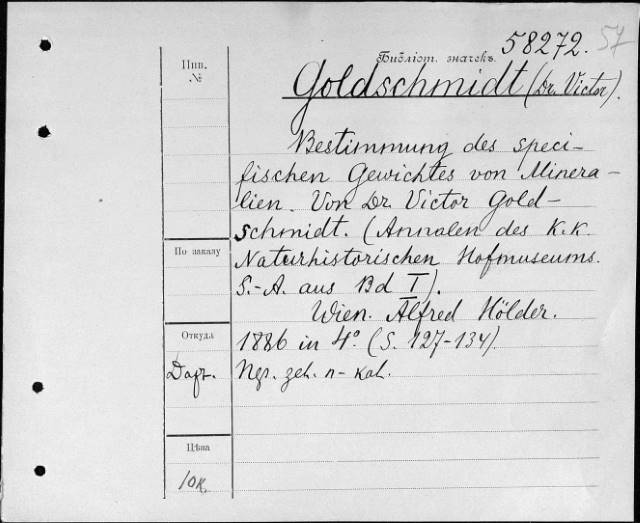 58272. 57
Библіот. значекъ
Goldschmidt (Dr. Victor).
Bestimmung des speci-
fischen Gewichtes von Minera-
lien. Von Dr. Victor Gold-
schmidt. (Annalen des K.K.
Naturhistorischen Hofmuseums.
S.-A. aus Bd I).
Wien. Alfred Hölder.
1886 in 4° (S. 127-134)
Инв.
№
По заказу
Откуда
Цѣна
10к.